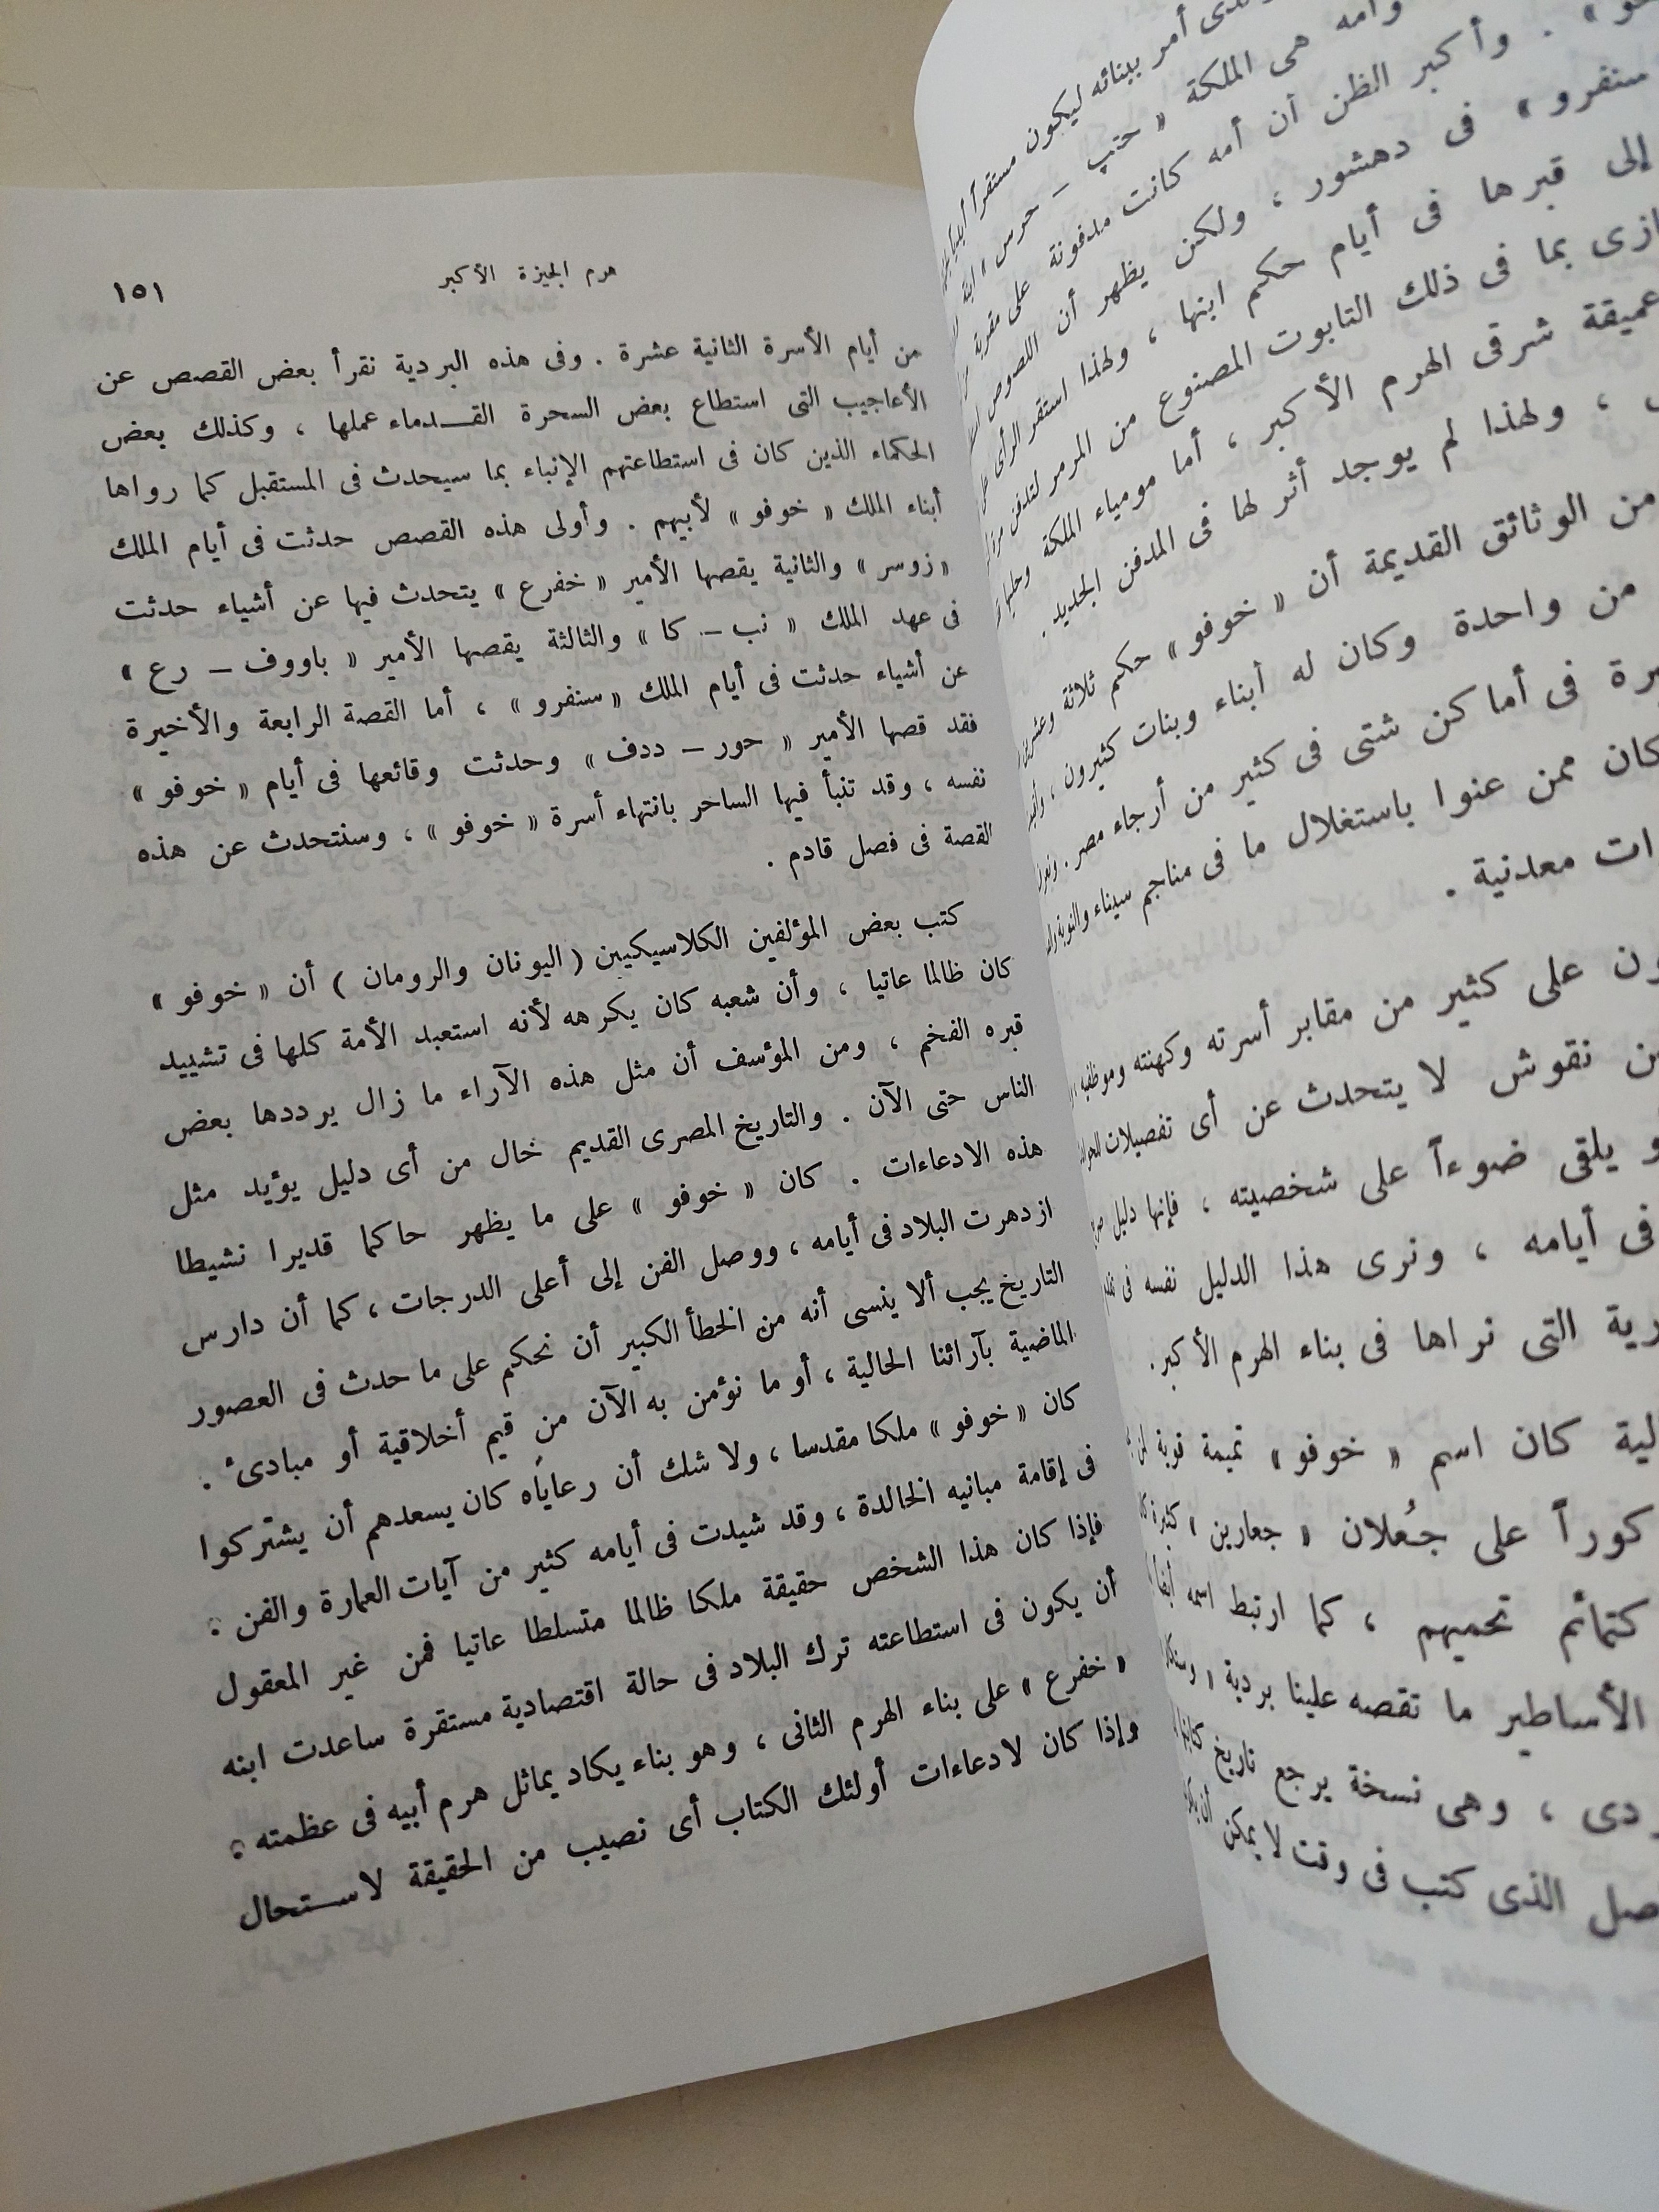 أمر ببنائه ليكون مستقرا
وأمه هى الملكة « حتب – حرس » ابنة
وأكبر الظن أن أمه كانت مدفونة على مقربة
سنفرو » فى دهشور ، ولكن يظهر أن اللصوص
إلى قبرها فى أيام حكم ابنها ، ولهذا استقر الرأى على
بما فى ذلك التابوت المصنوع من المرمر لتدفن
عميقة شرقى الهرم الأكبر ، أما مومياء الملكة
، ولهذا لم يوجد أثر لها فى المدفن الجديد .
من الوثائق القديمة أن « خوفو » حكم ثلاثة
من واحدة وكان له أبناء وبنات كثيرون ،
فى أماكن شتى فى كثير من أرجاء مصر .
كان ممن عنوا باستغلال ما فى مناجم سيناء والنوبة
معدنية .
على كثير من مقابر أسرته وكهنته وموظفيه
نقوش لا يتحدث عن أى تفصيلات
يلقى ضوءاً على شخصيته ، فإنها دليل
فى أيامه ، ونرى هذا الدليل نفسه فى
التى نراها فى بناء الهرم الأكبر.
كان اسم « خوفو » تميمة قوية
على جُعلان « جعارين » كثيرة
كتمائم تحميهم ، كما ارتبط اسمه أيضا
الأساطير ما تقصه علينا بردية
، وهى نسخة يرجع تاريخ
الذى كتب فى وقت لا يمكن
هرم الجيزة الأكبر ١٥١
من أيام الأسرة الثانية عشرة . وفى هذه البردية نقرأ بعض القصص عن
الأعاجيب التى استطاع بعض السحرة القـدماء عملها ، وكذلك بعض
الحكماء الذين كان فى استطاعتهم الإنباء بما سيحدث فى المستقبل كما رواها
أبناء الملك « خوفو » لأبيهم . وأولى هذه القصص حدثت فى أيام الملك
« زوسر » والثانية يقصها الأمير « خفرع » يتحدث فيها عن أشياء حدثت
فى عهد الملك « نب – كا » والثالثة يقصها الأمير « باووف – رع »
عن أشياء حدثت فى أيام الملك « سنفرو » ، أما القصة الرابعة والأخيرة
فقد قصها الأمير « حور – ددف » وحدثت وقائعها فى أيام « خوفو »
نفسه ، وقد تنبأ فيها الساحر بانتهاء أسرة « خوفو » ، وسنتحدث عن هذه
القصة فى فصل قادم .
كتب بعض المؤلفين الكلاسيكيين ( اليونان والرومان ) أن « خوفو »
كان ظالما عاتيا ، وأن شعبه كان يكرهه لأنه استعبد الأمة كلها فى تشييد
قبره الفخم ، ومن المؤسف أن مثل هذه الآراء ما زال يرددها بعض
الناس حتى الآن . والتاريخ المصرى القديم خال من أى دليل يؤيد مثل
هذه الادعاءات . كان « خوفو » على ما يظهر حاكما قديرا نشيطا
ازدهرت البلاد فى أيامه ، ووصل الفن إلى أعلى الدرجات ، كما أن دارس
التاريخ يجب ألا ينسى أنه من الخطأ الكبير أن نحكم على ما حدث فى العصور
الماضية بآرائنا الحالية ، أو ما نؤمن به الآن من قيم أخلاقية أو مبادئ .
كان « خوفو » ملكا مقدسا ، ولا شك أن رعاياه كان يسعدهم أن يشتركوا
فى إقامة مبانيه الخالدة ، وقد شيدت فى أيامه كثير من آيات العمارة والفن :
فإذا كان هذا الشخص حقيقة ملكا ظالما متسلطا عاتيا فمن غير المعقول
أن يكون فى استطاعته ترك البلاد فى حالة اقتصادية مستقرة ساعدت ابنه
« خفرع » على بناء الهرم الثانى ، وهو بناء يكاد يماثل هرم أبيه فى عظمته :
وإذا كان لادعاءات أولئك الكتاب أى نصيب من الحقيقة لاستحال